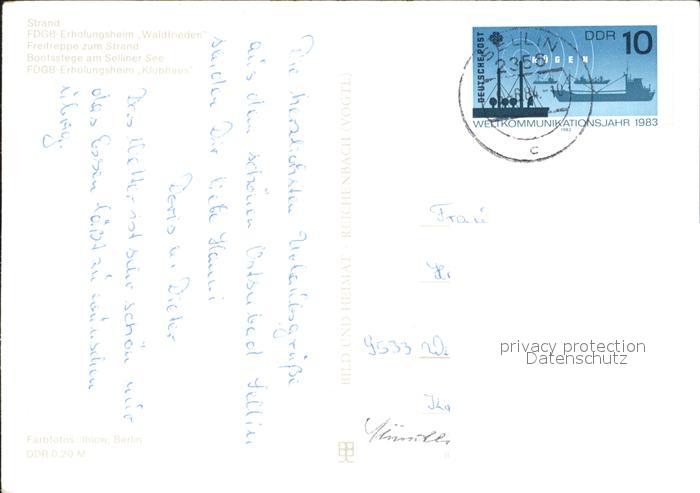 Strand
FDGB-Erholungsheim „Waldfrieden"
Freitreppe zum Strand
Bootsstege am Selliner See
FDGB-Erholungsheim „Klubhaus"
Die herzlichsten Urlaubsgrüße
aus dem schönen Ostseebad Sellin
senden Dir liebe Hanni
Doris u. Dieter
Das Wetter ist sehr schön nur
das Essen läßt zu wünschen
übrig.
Farbfotos: Ihlow, Berlin
DDR 0,20 M
BILD UND HEIMAT · REICHENBACH (VOGTL)
DEUTSCHE POST
DDR 10
RÜGEN
WELTKOMMUNIKATIONSJAHR 1983
1983
SELLIN
2356
c
Frau
9533 Wi
privacy protection
Datenschutz